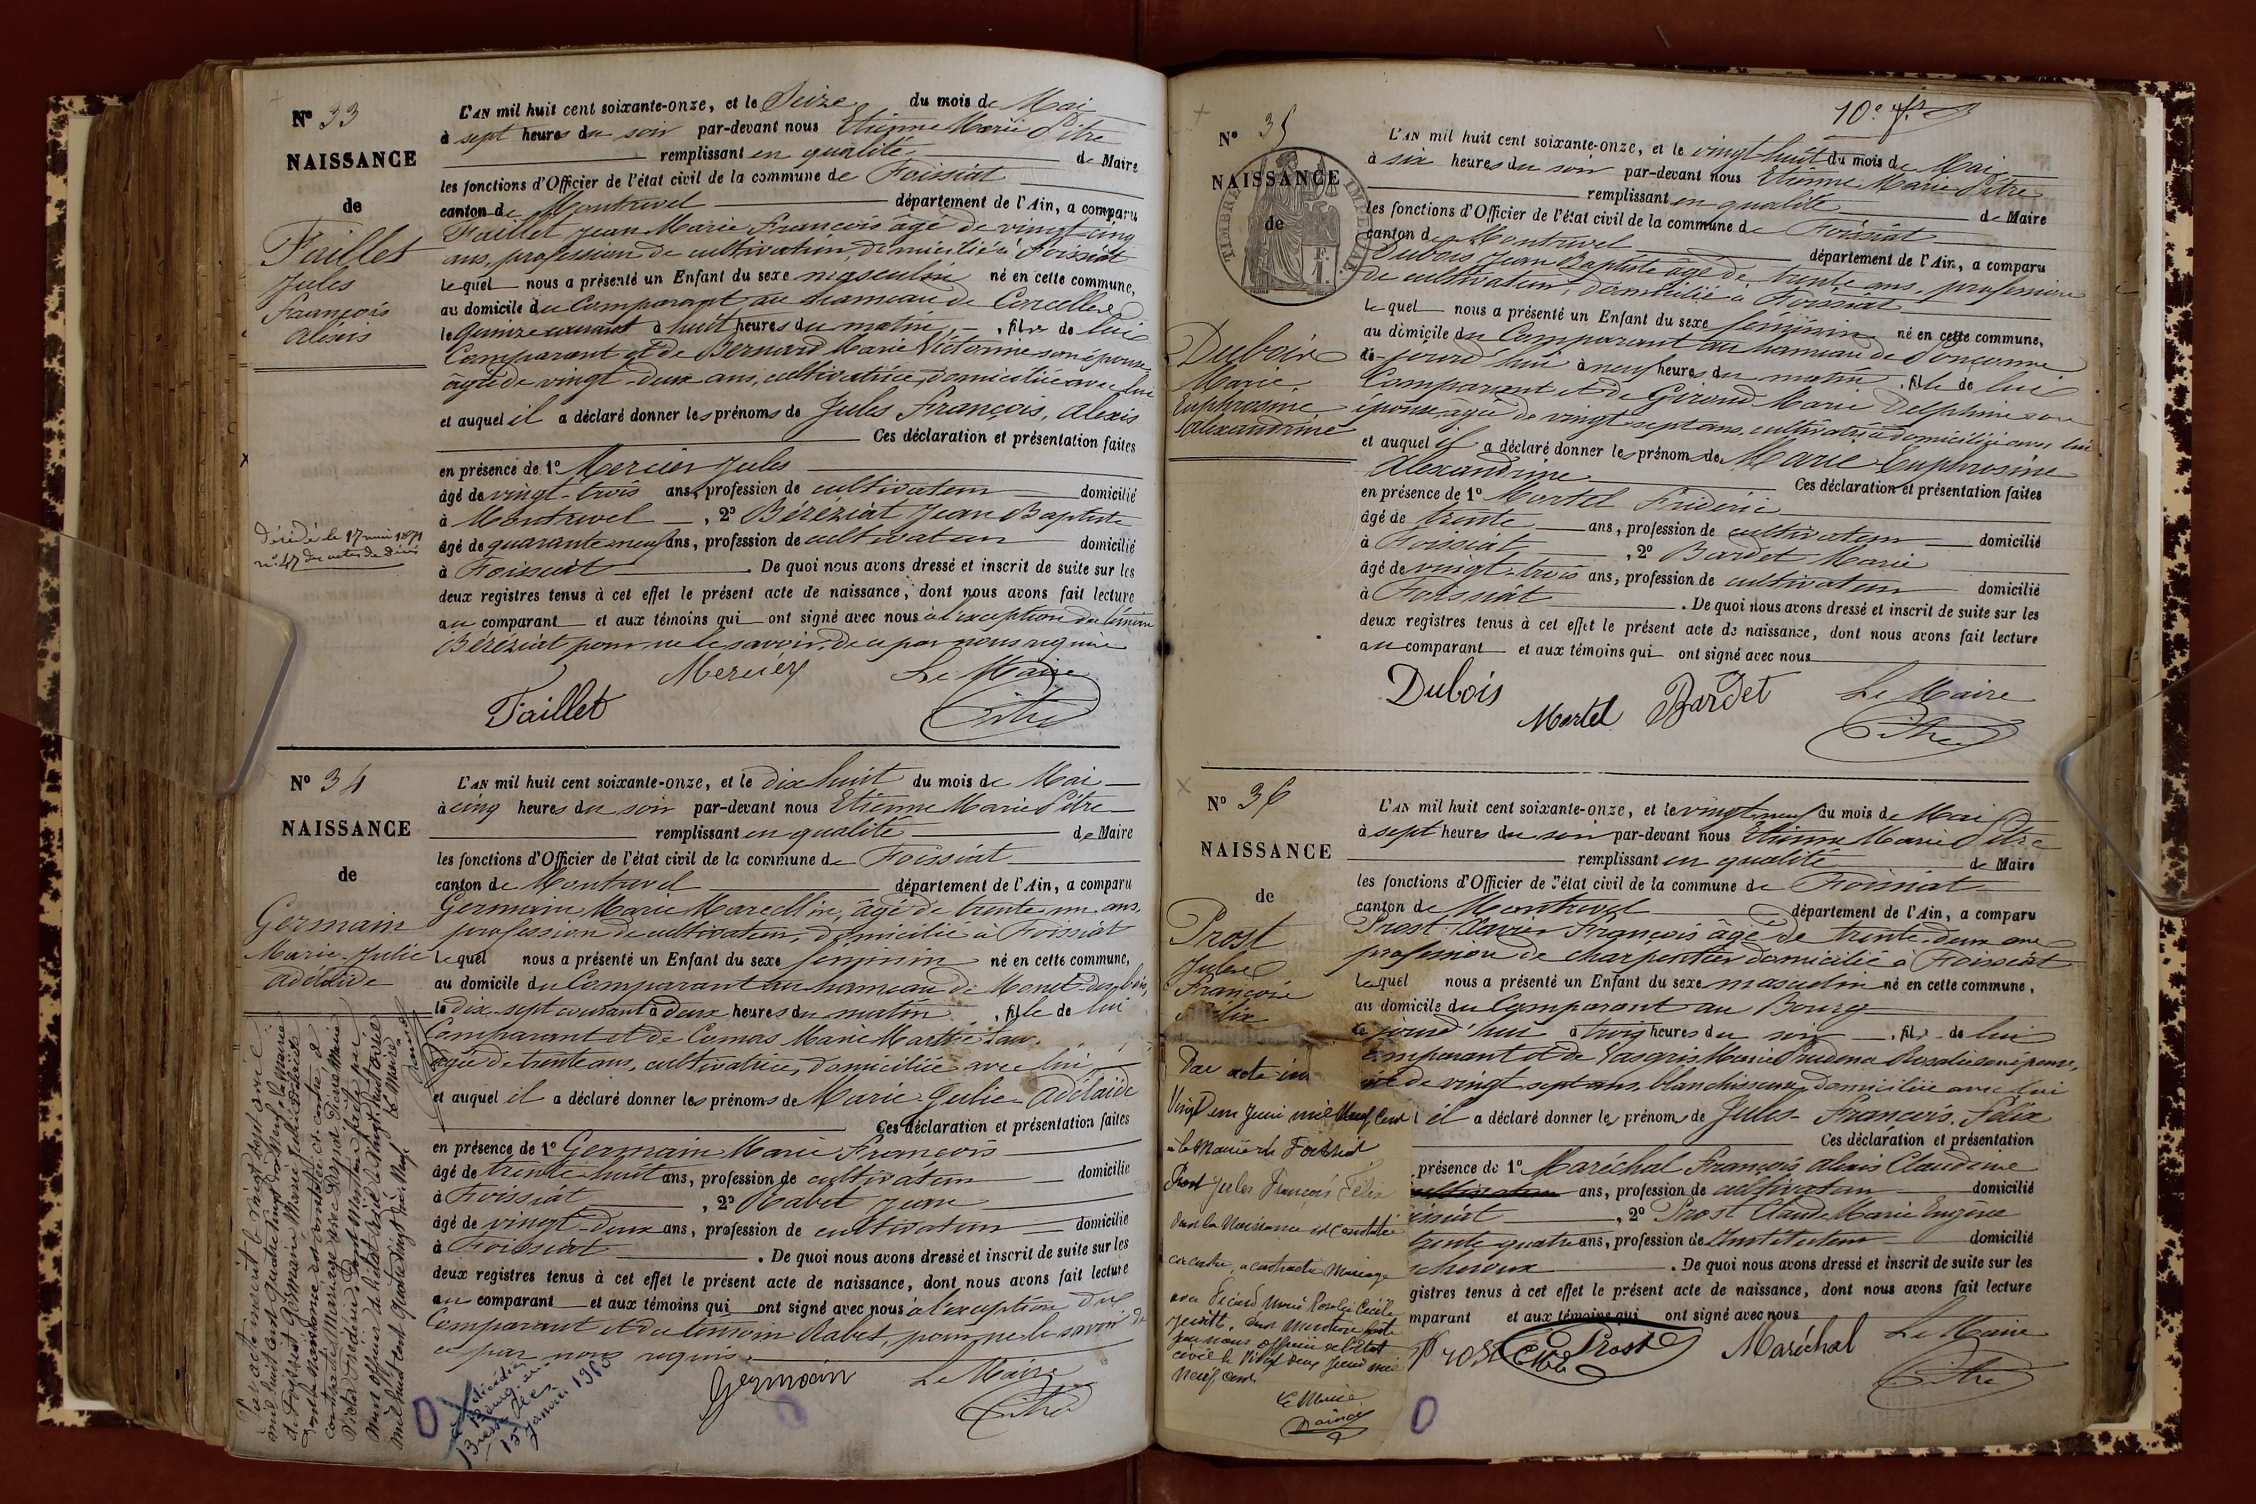 N° 33
NAISSANCE
de
Faillet
Jules
François
Alexis
décédé le 17 mai 1871
n° 47 des actes de décès
L'AN mil huit cent soixante-onze, et le Seize du mois de Mai
à sept heures du soir par-devant nous Etienne Marie Pitre
remplissant en qualité de Maire
les fonctions d'Officier de l'état civil de la commune de Foissiat
canton de Montrevel département de l'Ain, a comparu
Faillet Jean Marie François âgé de vingt cinq
ans, profession de cultivateur, domicilié à Foissiat
lequel nous a présenté un Enfant du sexe masculin né en cette commune,
au domicile du Comparant au hameau de Corcelles
le quinze courant à huit heures du matin, fils de lui
Comparant et de Bernard Marie Victorine son épouse
âgée de vingt-deux ans, cultivatrice, domiciliée avec lui
et auquel il a déclaré donner les prénoms de Jules François, Alexis
Ces déclaration et présentation faites
en présence de 1° Mercier Jules
âgé de vingt-trois ans, profession de cultivateur domicilié
à Montrevel, 2° Béréziat Jean Baptiste
âgé de quarante neuf ans, profession de cultivateur domicilié
à Foissiat. De quoi nous avons dressé et inscrit de suite sur les
deux registres tenus à cet effet le présent acte de naissance, dont nous avons fait lecture
au comparant et aux témoins qui ont signé avec nous à l'exception du témoin
Béréziat pour ne le savoir, de ce par nous requis
Mercier Le Maire
Faillet Pitre
N° 34
NAISSANCE
de
Germain
Marie-Julie
Adélaïde
L'AN mil huit cent soixante-onze, et le dix huit du mois de Mai
à cinq heures du soir par-devant nous Etienne Marie Pitre
remplissant en qualité de Maire
les fonctions d'Officier de l'état civil de la commune de Foissiat
canton de Montrevel département de l'Ain, a comparu
Germain Marie Marcellin, âgé de trente un ans,
profession de cultivateur, domicilié à Foissiat
lequel nous a présenté un Enfant du sexe féminin né en cette commune,
au domicile du Comparant au hameau de
le dix-sept courant à deux heures du matin, fille de lui
Comparant et de Marie Marthe
âgée de trente ans, cultivatrice, domiciliée avec lui
et auquel il a déclaré donner les prénoms de Marie Julie Adélaïde
Ces déclaration et présentation faites
en présence de 1° Germain Marie François
âgé de trente huit ans, profession de cultivateur domicilié
à Foissiat, 2° Rabet Jean
âgé de vingt-deux ans, profession de cultivateur domicilié
à Foissiat. De quoi nous avons dressé et inscrit de suite sur les
deux registres tenus à cet effet le présent acte de naissance, dont nous avons fait lecture
au comparant et aux témoins qui ont signé avec nous à l'exception du
Comparant et du témoin Rabet, pour ne le savoir de
ce par nous requis.
Germain Le Maire
Pitre
décédée
à Bâgé
janvier 1960
10e
N° 35
NAISSANCE
de
Dubois
Marie
Euphrosine
Alexandrine
L'AN mil huit cent soixante-onze, et le vingt-huit du mois de Mai
à six heures du soir par-devant nous Etienne Marie Pitre
remplissant en qualité de Maire
les fonctions d'Officier de l'état civil de la commune de Foissiat
canton de Montrevel département de l'Ain, a comparu
Dubois Jean Baptiste âgé de trente ans, profession
de cultivateur, domicilié à Foissiat
lequel nous a présenté un Enfant du sexe féminin né en cette commune,
au domicile du Comparant au hameau de
jourd'hui à neuf heures du matin, fille de lui
Comparant et de Giroud Marie Delphine son
épouse âgée de vingt-sept ans, cultivatrice domiciliée avec lui
et auquel il a déclaré donner les prénoms de Marie Euphrosine
Alexandrine Ces déclaration et présentation faites
en présence de 1° Martel Frédéric
âgé de trente ans, profession de cultivateur domicilié
à Foissiat, 2° Bardet Marie
âgé de vingt-trois ans, profession de cultivateur domicilié
à Foissiat. De quoi nous avons dressé et inscrit de suite sur les
deux registres tenus à cet effet le présent acte de naissance, dont nous avons fait lecture
au comparant et aux témoins qui ont signé avec nous
Dubois Martel Bardet Le Maire
Pitre
N° 36
NAISSANCE
de
Prost
Jules
François
Félix
L'AN mil huit cent soixante-onze, et le vingt neuf du mois de Mai
à sept heures du soir par-devant nous Etienne Marie Pitre
remplissant en qualité de Maire
les fonctions d'Officier de l'état civil de la commune de Foissiat
canton de Montrevel département de l'Ain, a comparu
Prost Xavier François âgé de trente-deux ans
profession de charpentier domicilié à Foissiat
lequel nous a présenté un Enfant du sexe masculin né en cette commune,
au domicile du Comparant au Bourg
ce jourd'hui à trois heures du soir, fils de lui
comparant et de Marie Prudence Rosalie son épouse,
de vingt sept ans, blanchisseuse, domiciliée avec lui
il a déclaré donner les prénoms de Jules-François, Félix
Ces déclaration et présentation
présence de 1° Maréchal François Alexis Claudine
ans, profession de cultivateur domicilié
, 2° Prost Claude Marie Eugène
trente quatre ans, profession de Instituteur domicilié
. De quoi nous avons dressé et inscrit de suite sur les
gistres tenus à cet effet le présent acte de naissance, dont nous avons fait lecture
mparant et aux témoins qui ont signé avec nous
Prost Maréchal Le Maire
Pitre
Par acte in
Vingt un Juin mil Neuf Cent
à la Mairie de Foissiat
Prost Jules François Félix
dont la Naissance est constatée
ci-contre, a contracté Mariage
avec Picard Marie Rosalie Cécile
dont mention faite
par nous officier de l'état
civil le Vingt deux Juin mil
neuf cent.
Le Maire